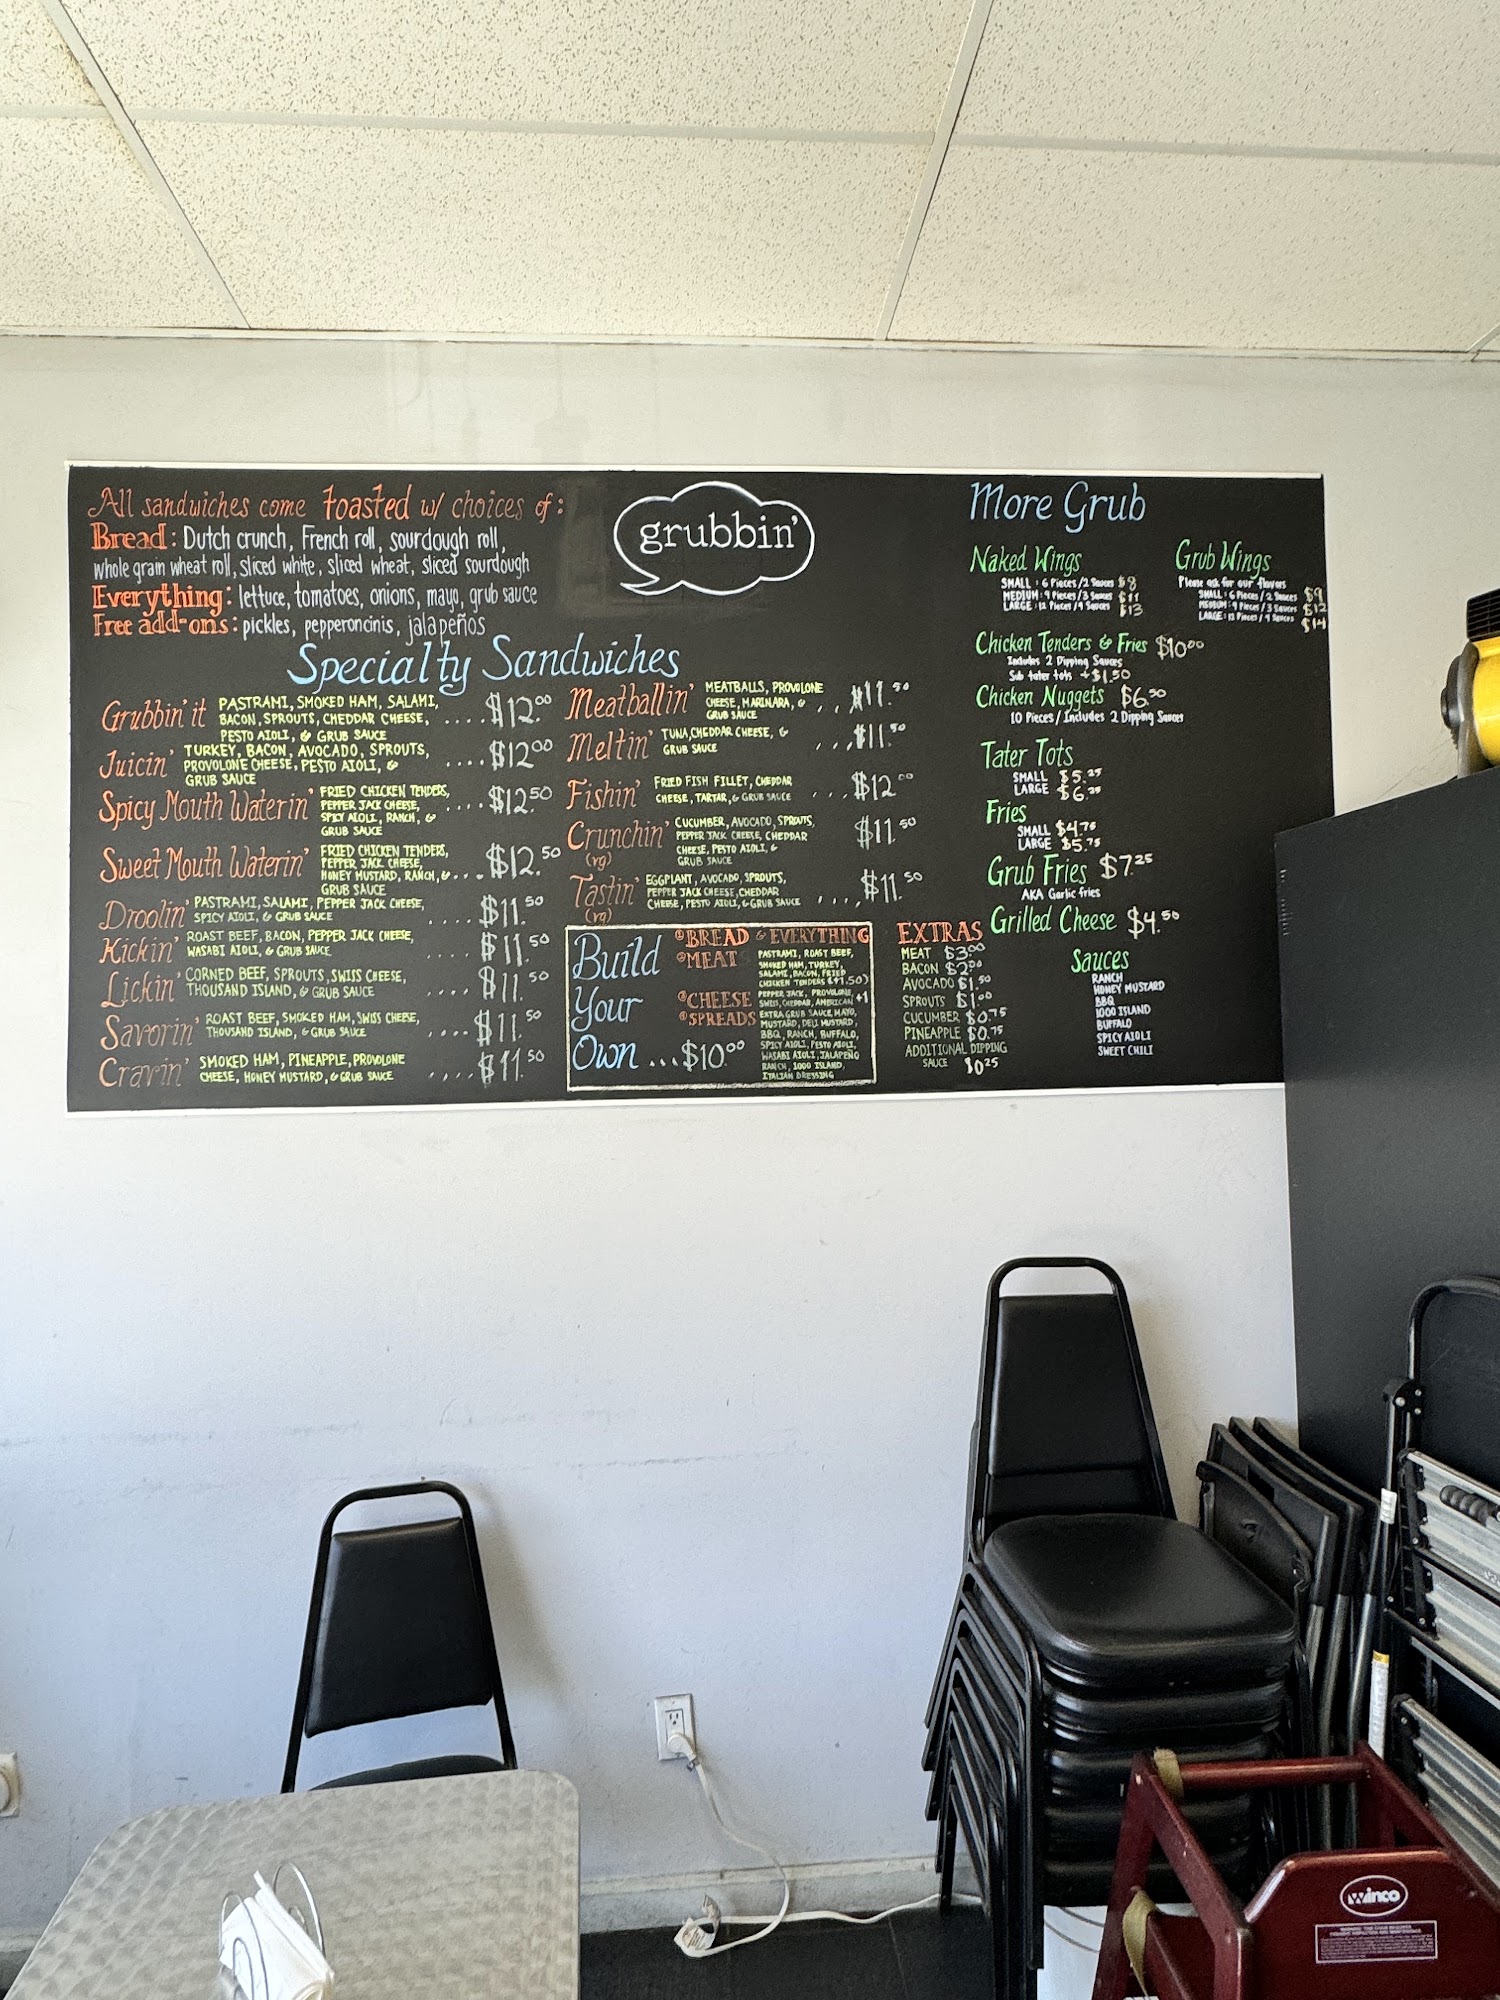 All sandwiches come toasted w/ choices of:
Bread: Dutch crunch, French roll, sourdough roll,
whole grain wheat roll, sliced white, sliced wheat, sliced sourdough
Everything: lettuce, tomatoes, onions, mayo, grub sauce
Free add-ons: pickles, pepperoncinis, jalapeños
grubbin'
Specialty Sandwiches
Grubbin' it
PASTRAMI, SMOKED HAM, SALAMI,
BACON, SPROUTS, CHEDDAR CHEESE,
PESTO AIOLI, & GRUB SAUCE
.... $12.00
Juicin'
TURKEY, BACON, AVOCADO, SPROUTS,
PROVOLONE CHEESE, PESTO AIOLI, &
GRUB SAUCE
.... $12.00
Spicy Mouth Waterin'
FRIED CHICKEN TENDERS,
PEPPER JACK CHEESE,
SPICY AIOLI, RANCH, &
GRUB SAUCE
.... $12.50
Sweet Mouth Waterin'
FRIED CHICKEN TENDERS,
PEPPER JACK CHEESE,
HONEY MUSTARD, RANCH, &
GRUB SAUCE
... $12.50
Droolin'
PASTRAMI, SALAMI, PEPPER JACK CHEESE,
SPICY AIOLI, & GRUB SAUCE
.... $11.50
Kickin'
ROAST BEEF, BACON, PEPPER JACK CHEESE,
WASABI AIOLI, & GRUB SAUCE
.... $11.50
Lickin'
CORNED BEEF, SPROUTS, SWISS CHEESE,
THOUSAND ISLAND, & GRUB SAUCE
.... $11.50
Savorin'
ROAST BEEF, SMOKED HAM, SWISS CHEESE,
THOUSAND ISLAND, & GRUB SAUCE
.... $11.50
Cravin'
SMOKED HAM, PINEAPPLE, PROVOLONE
CHEESE, HONEY MUSTARD, & GRUB SAUCE
.... $11.50
Meatballin'
MEATBALLS, PROVOLONE
CHEESE, MARINARA, &
GRUB SAUCE
... $11.50
Meltin'
TUNA, CHEDDAR CHEESE, &
GRUB SAUCE
... $11.50
Fishin'
FRIED FISH FILLET, CHEDDAR
CHEESE, TARTAR, & GRUB SAUCE
... $12.00
Crunchin'
(vg)
CUCUMBER, AVOCADO, SPROUTS,
PEPPER JACK CHEESE, CHEDDAR
CHEESE, PESTO AIOLI, &
GRUB SAUCE
$11.50
Tastin'
(vg)
EGGPLANT, AVOCADO, SPROUTS,
PEPPER JACK CHEESE, CHEDDAR
CHEESE, PESTO AIOLI, & GRUB SAUCE
.... $11.50
Build
Your
Own ... $10.00
BREAD & EVERYTHING
MEAT
PASTRAMI, ROAST BEEF,
SMOKED HAM, TURKEY,
SALAMI, BACON, FRIED
CHICKEN TENDERS (+1.50)
CHEESE
PEPPER JACK, PROVOLONE,
SWISS, CHEDDAR, AMERICAN +1
SPREADS
EXTRA GRUB SAUCE, MAYO,
MUSTARD, DELI MUSTARD,
BBQ, RANCH, BUFFALO,
SPICY AIOLI, PESTO AIOLI,
WASABI AIOLI, JALAPEÑO
RANCH, 1000 ISLAND,
ITALIAN DRESSING
EXTRAS
MEAT $3.00
BACON $2.00
AVOCADO $1.50
SPROUTS $1.00
CUCUMBER $0.75
PINEAPPLE $0.75
ADDITIONAL DIPPING
SAUCE $0.25
More Grub
Naked Wings
SMALL: 6 Pieces/2 Sauces $8
MEDIUM: 9 Pieces/3 Sauces $11
LARGE: 12 Pieces/4 Sauces $13
Grub Wings
Please ask for our flavors
SMALL: 6 Pieces/2 Sauces $9
MEDIUM: 9 Pieces/3 Sauces $12
LARGE: 12 Pieces/4 Sauces $14
Chicken Tenders & Fries $10.00
Includes 2 Dipping Sauces
Sub tater tots +$1.50
Chicken Nuggets $6.50
10 Pieces/Includes 2 Dipping Sauces
Tater Tots
SMALL $5.25
LARGE $6.25
Fries
SMALL $4.75
LARGE $5.75
Grub Fries $7.25
AKA Garlic fries
Grilled Cheese $4.50
Sauces
RANCH
HONEY MUSTARD
BBQ
1000 ISLAND
BUFFALO
SPICY AIOLI
SWEET CHILI
winco